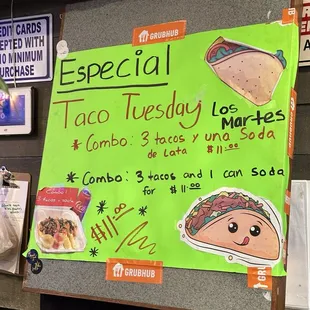 CREDIT CARDS
ACCEPTED WITH
10 MINIMUM
PURCHASE
GRUBHUB
Especial
Taco Tuesday Los
Martes
* Combo: 3 tacos y una Soda
de Lata * $11.00
* Combo: 3 tacos and 1 can Soda
for * $11.00
* $11.00
GRUBHUB
GRUBHUB